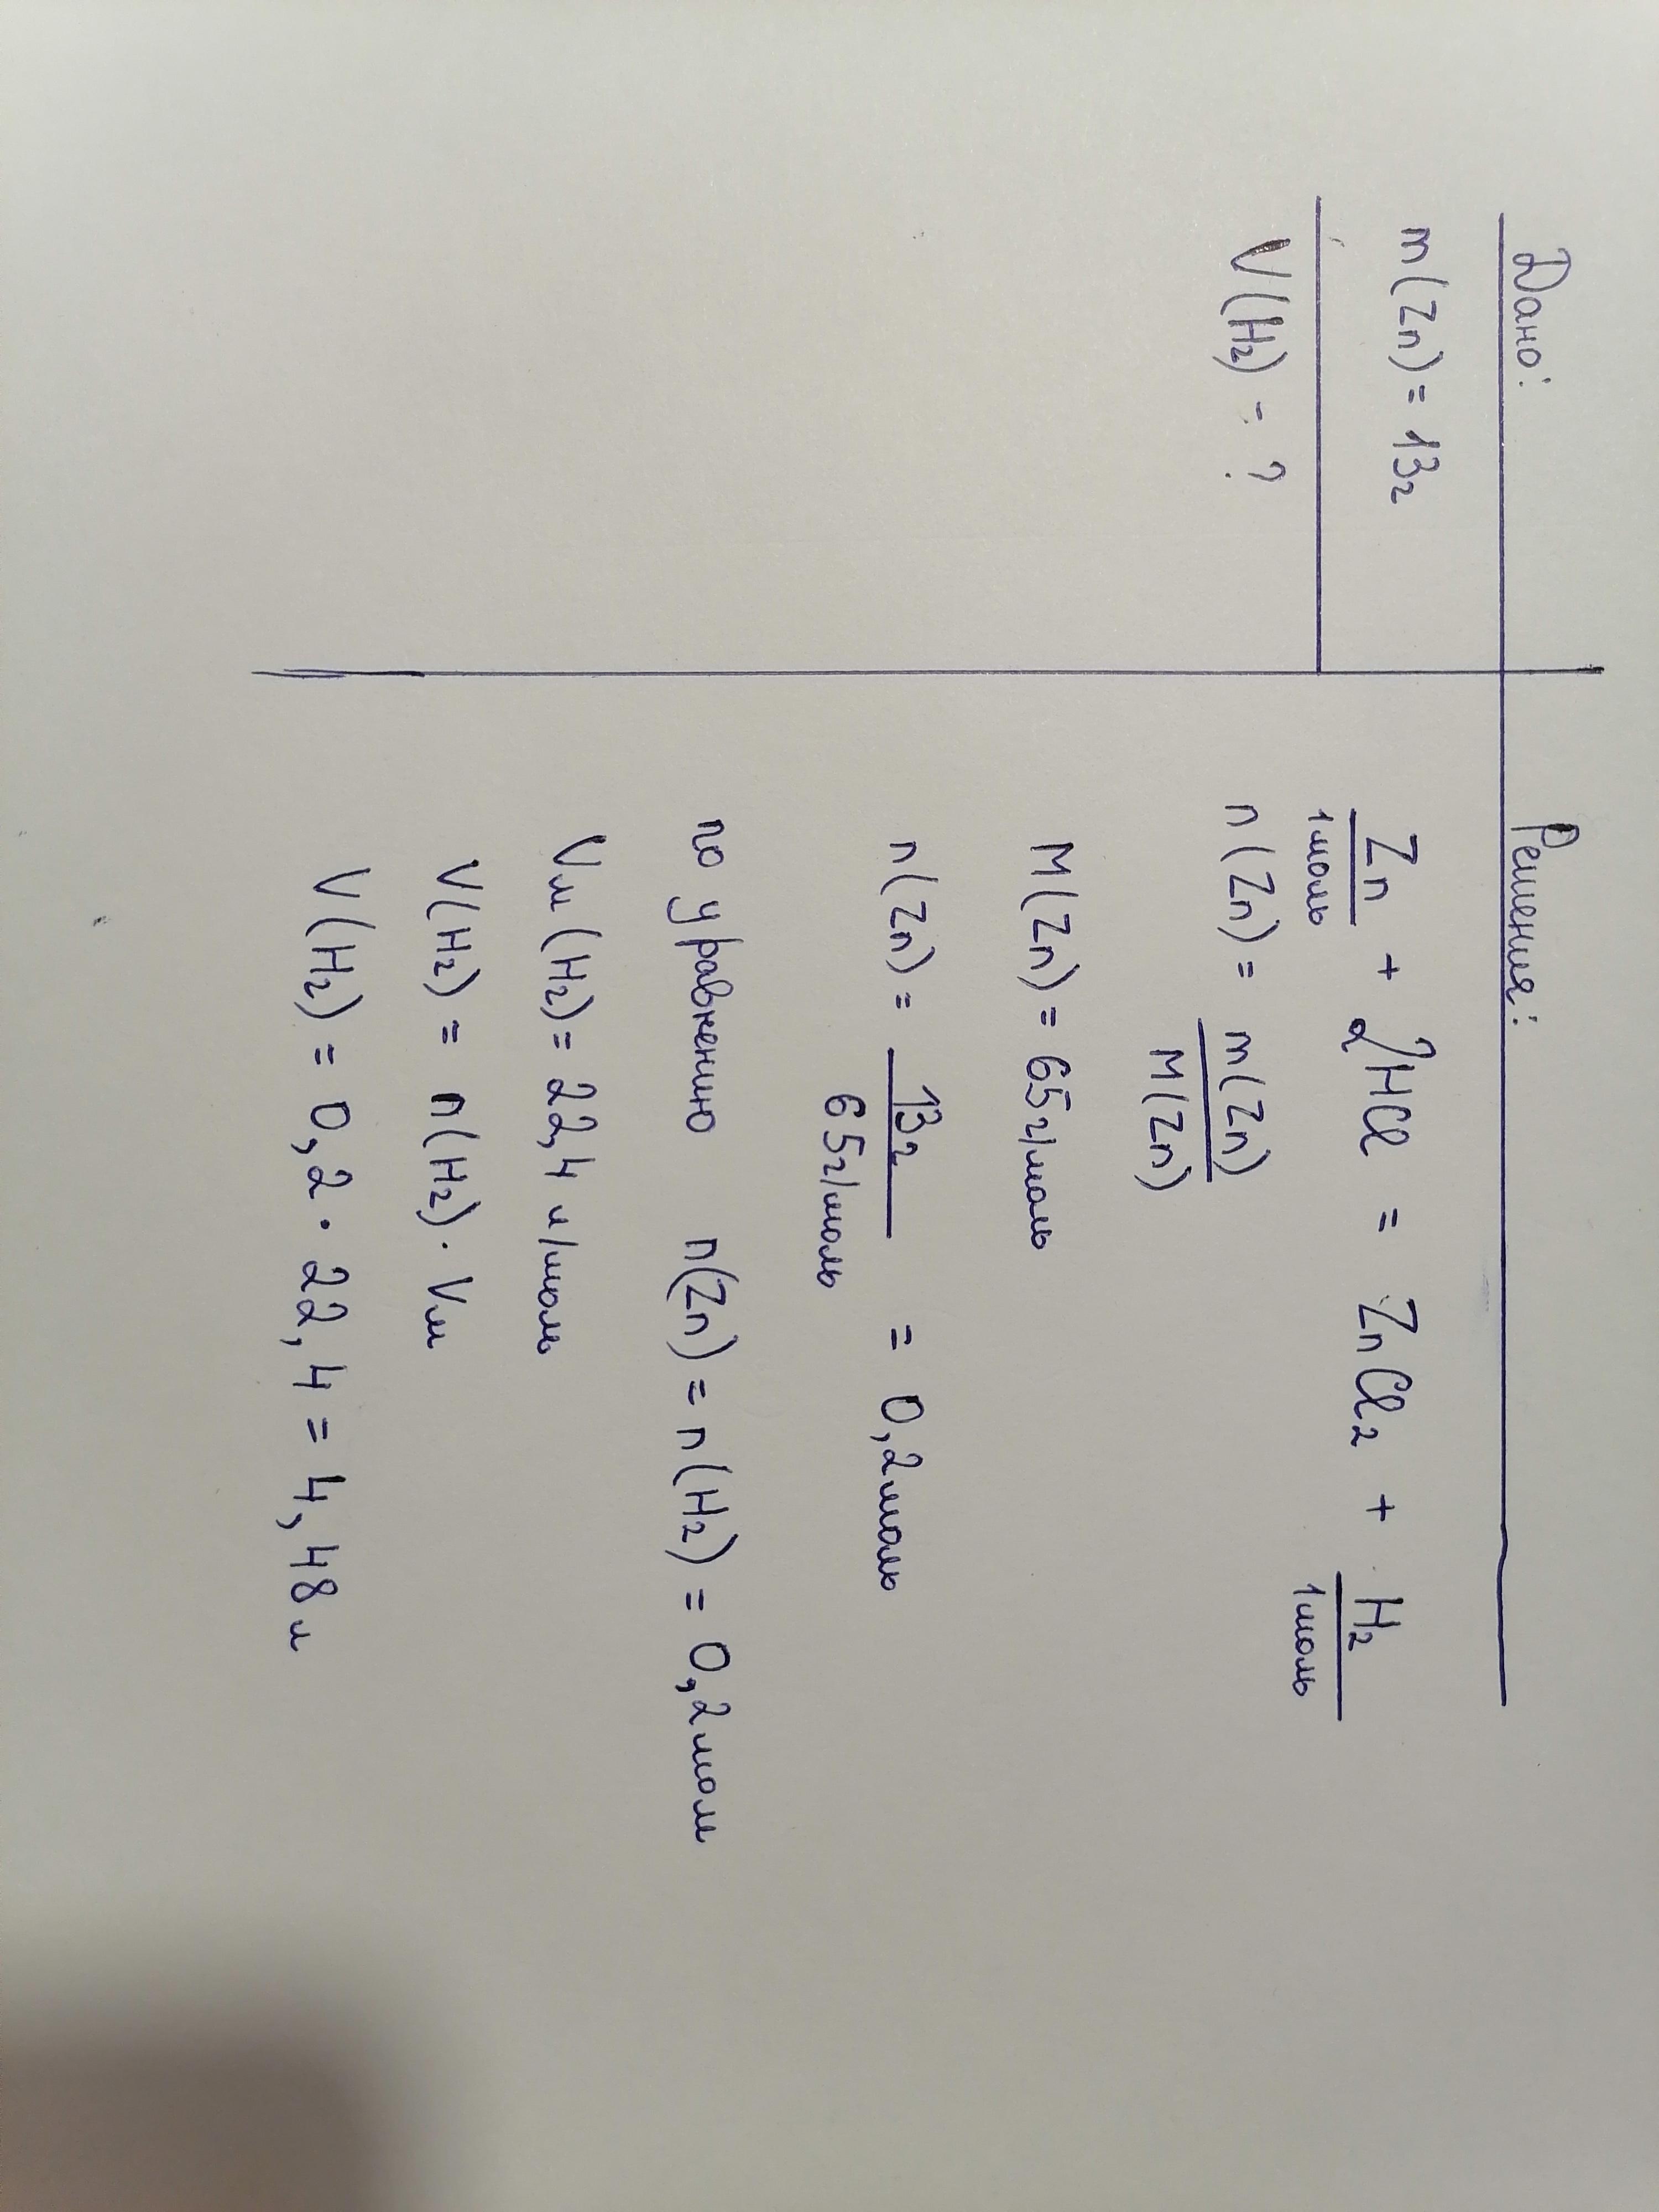 Дано:
m(Zn) = 13г
V(H₂) - ?
Решения:
Zn + 2HCl = ZnCl₂ + H₂
1моль 1моль
n(Zn) = m(Zn)
M(Zn)
M(Zn) = 65г/моль
n(Zn) = 13г = 0,2моль
65г/моль
по уравнению n(Zn) = n(H₂) = 0,2мол
Vм(H₂) = 22,4 л/моль
V(H₂) = n(H₂) · Vм
V(H₂) = 0,2 · 22,4 = 4,48л